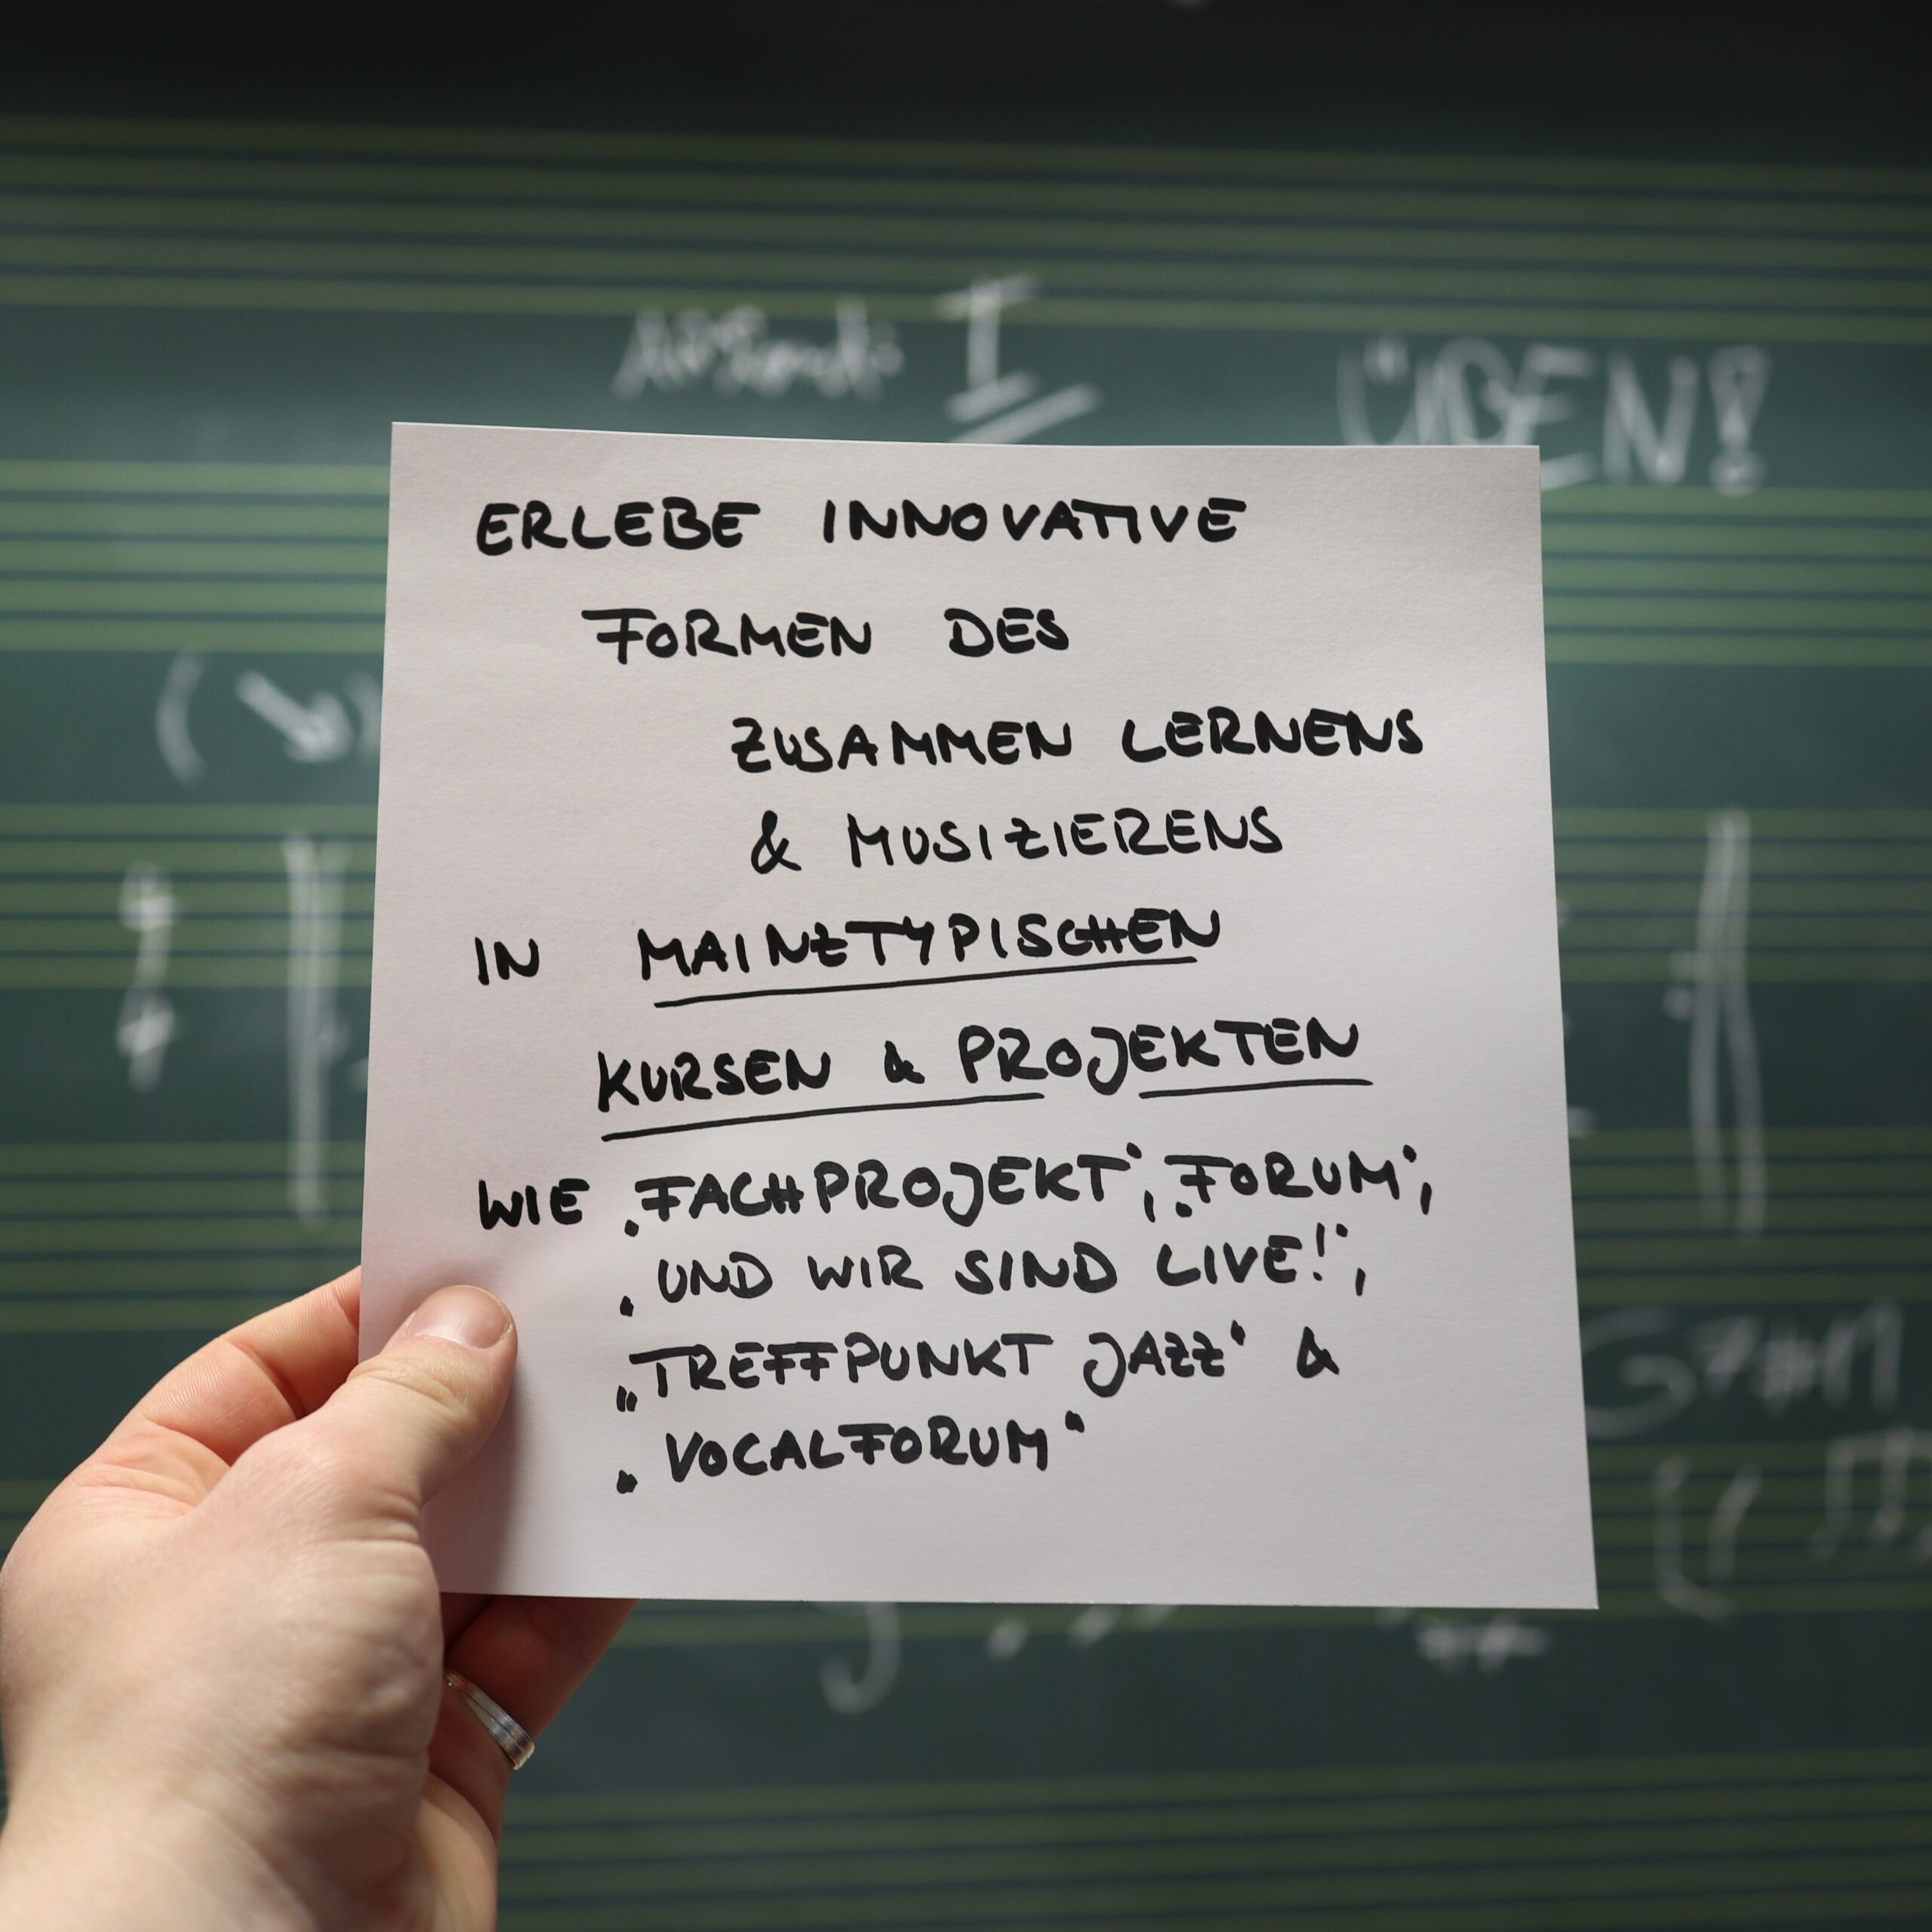 ÜBEN!
ERLEBE INNOVATIVE
FORMEN DES
ZUSAMMEN LERNENS
& MUSIZIERENS
IN MAINZTYPISCHEN
KURSEN & PROJEKTEN
WIE ‚FACHPROJEKT‘, ‚FORUM‘,
‚UND WIR SIND LIVE!‘,
„TREFFPUNKT JAZZ‘ &
‚VOCALFORUM‘